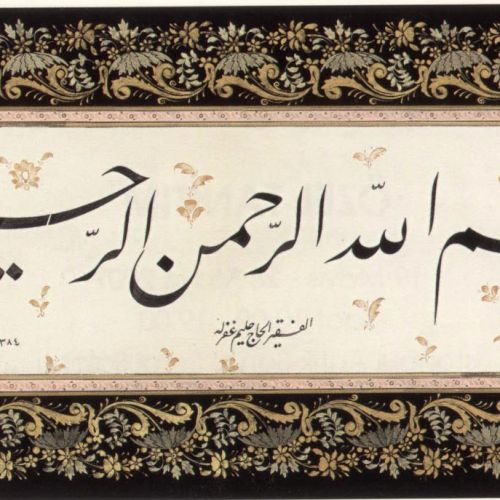 ـم اللّه الرّحمن الرّحيـ
الفقير الحاج حليم غفر له
٣٨٤